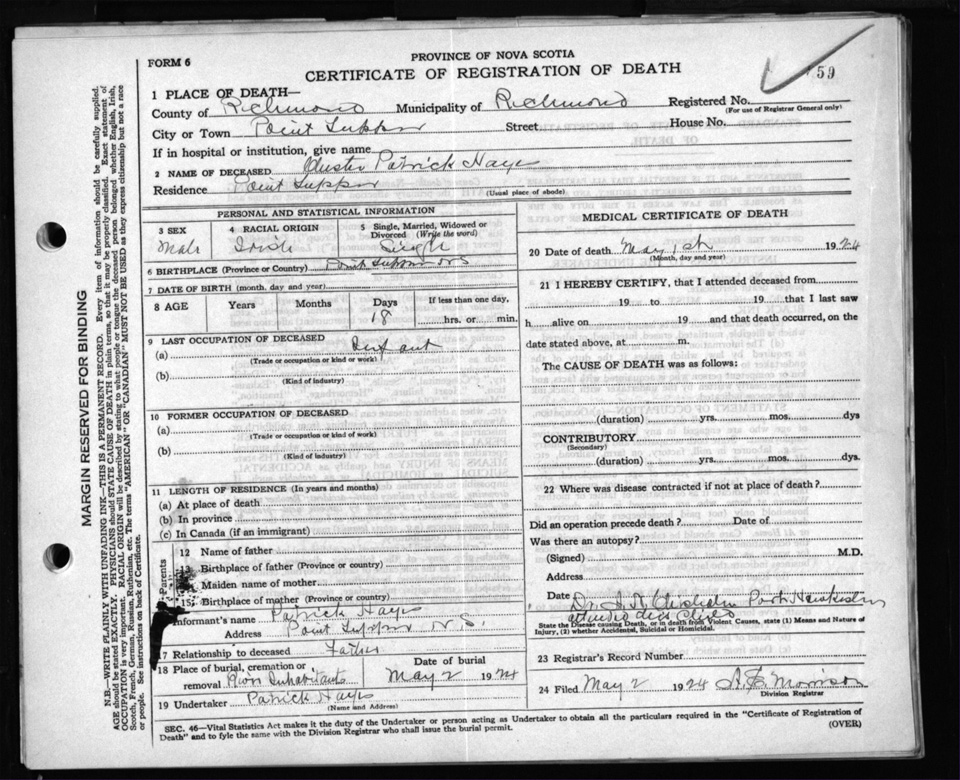 FORM 6
PROVINCE OF NOVA SCOTIA
CERTIFICATE OF REGISTRATION OF DEATH
59
1 PLACE OF DEATH—
County of Richmond Municipality of Richmond Registered No.
(For use of Registrar General only)
City or Town Point Tupper Street House No.
If in hospital or institution, give name
2 NAME OF DECEASED Patrick Hayes
Residence Point Tupper
(Usual place of abode)
PERSONAL AND STATISTICAL INFORMATION
3 SEX Male
4 RACIAL ORIGIN Irish
5 Single, Married, Widowed or Divorced (Write the word) Single
6 BIRTHPLACE (Province or Country) Point Tupper N S
7 DATE OF BIRTH (month, day and year)
8 AGE Years Months Days 18 If less than one day, hrs. or min.
9 LAST OCCUPATION OF DECEASED
(a) Infant
(Trade or occupation or kind of work)
(b)
(Kind of industry)
10 FORMER OCCUPATION OF DECEASED
(a)
(Trade or occupation or kind of work)
(b)
(Kind of industry)
11 LENGTH OF RESIDENCE (In years and months)
(a) At place of death
(b) In province
(c) In Canada (if an immigrant)
Parents
12 Name of father
13 Birthplace of father (Province or country)
Maiden name of mother
15 Birthplace of mother (Province or country)
Informant's name Patrick Hayes
Address Point Tupper N.S.
17 Relationship to deceased Father
18 Place of burial, cremation or removal River Inhabitants
Date of burial May 2 1924
19 Undertaker Patrick Hayes
(Name and Address)
MEDICAL CERTIFICATE OF DEATH
20 Date of death May 1st 1924
(Month, day and year)
21 I HEREBY CERTIFY, that I attended deceased from
19 to 19 that I last saw
h alive on 19 and that death occurred, on the
date stated above, at m.
The CAUSE OF DEATH was as follows:
(duration) yrs. mos. dys
CONTRIBUTORY
(Secondary)
(duration) yrs. mos. dys.
22 Where was disease contracted if not at place of death?
Did an operation precede death? Date of
Was there an autopsy?
(Signed) M.D.
Address
Date
Dr. Chisholm Port Hawkesbury
attended this
State the Disease causing Death, or in death from Violent Causes, state (1) Means and Nature of
Injury, (2) whether Accidental, Suicidal or Homicidal.
23 Registrar's Record Number
24 Filed May 2 1924 Morrison
Division Registrar
SEC. 46—Vital Statistics Act makes it the duty of the Undertaker or person acting as Undertaker to obtain all the particulars required in the "Certificate of Registration of
Death" and to fyle the same with the Division Registrar who shall issue the burial permit.
(OVER)
MARGIN RESERVED FOR BINDING
N.B.—WRITE PLAINLY WITH UNFADING INK—THIS IS A PERMANENT RECORD. Every item of information should be carefully supplied.
AGE should be stated EXACTLY. PHYSICIANS should STATE CAUSE OF DEATH in plain terms, so that it may be properly classified. Exact statement of
OCCUPATION is very important. RACIAL ORIGIN will be described by stating to what people or tongue the deceased person belonged whether English, Irish,
Scotch, French, German, Russian, Ruthenian, etc. The terms "AMERICAN" OR "CANADIAN" MUST NOT BE USED as they express citizenship but not a race
or people. See instructions on back of Certificate.